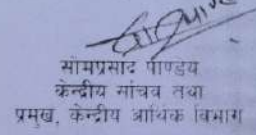 सोमप्रसाद पाण्डेय
केन्द्रीय सचिव तथा
प्रमुख, केन्द्रीय आर्थिक विभाग